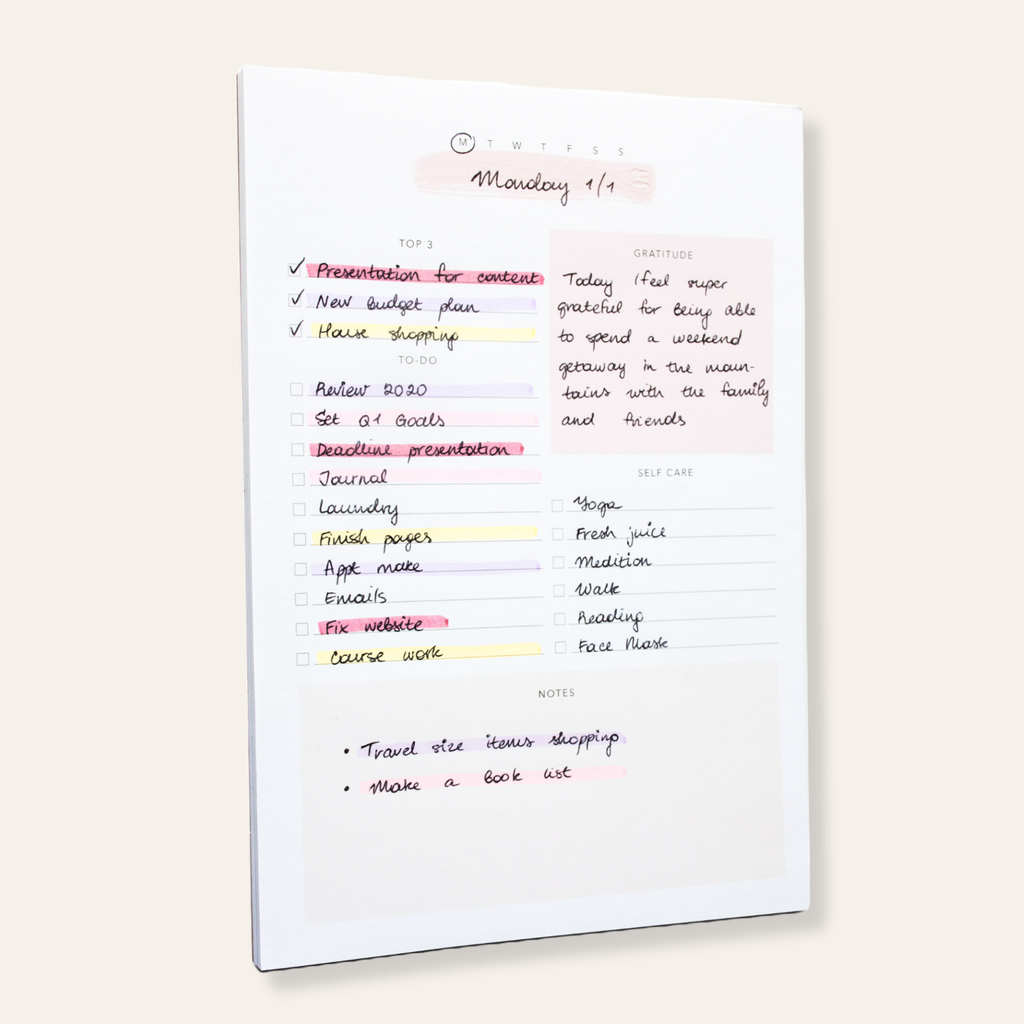 M T W T F S S
Monday 1/1
TOP 3
Presentation for content
New Budget plan
House shopping
TO-DO
Review 2020
Set Q1 Goals
Deadline presentation
Journal
Laundry
Finish pages
Appt make
Emails
Fix website
Course work
GRATITUDE
Today I feel super
grateful for being able
to spend a weekend
getaway in the moun-
tains with the family
and friends
SELF CARE
Yoga
Fresh juice
Medition
Walk
Reading
Face Mask
NOTES
• Travel size items shopping
• Make a Book list